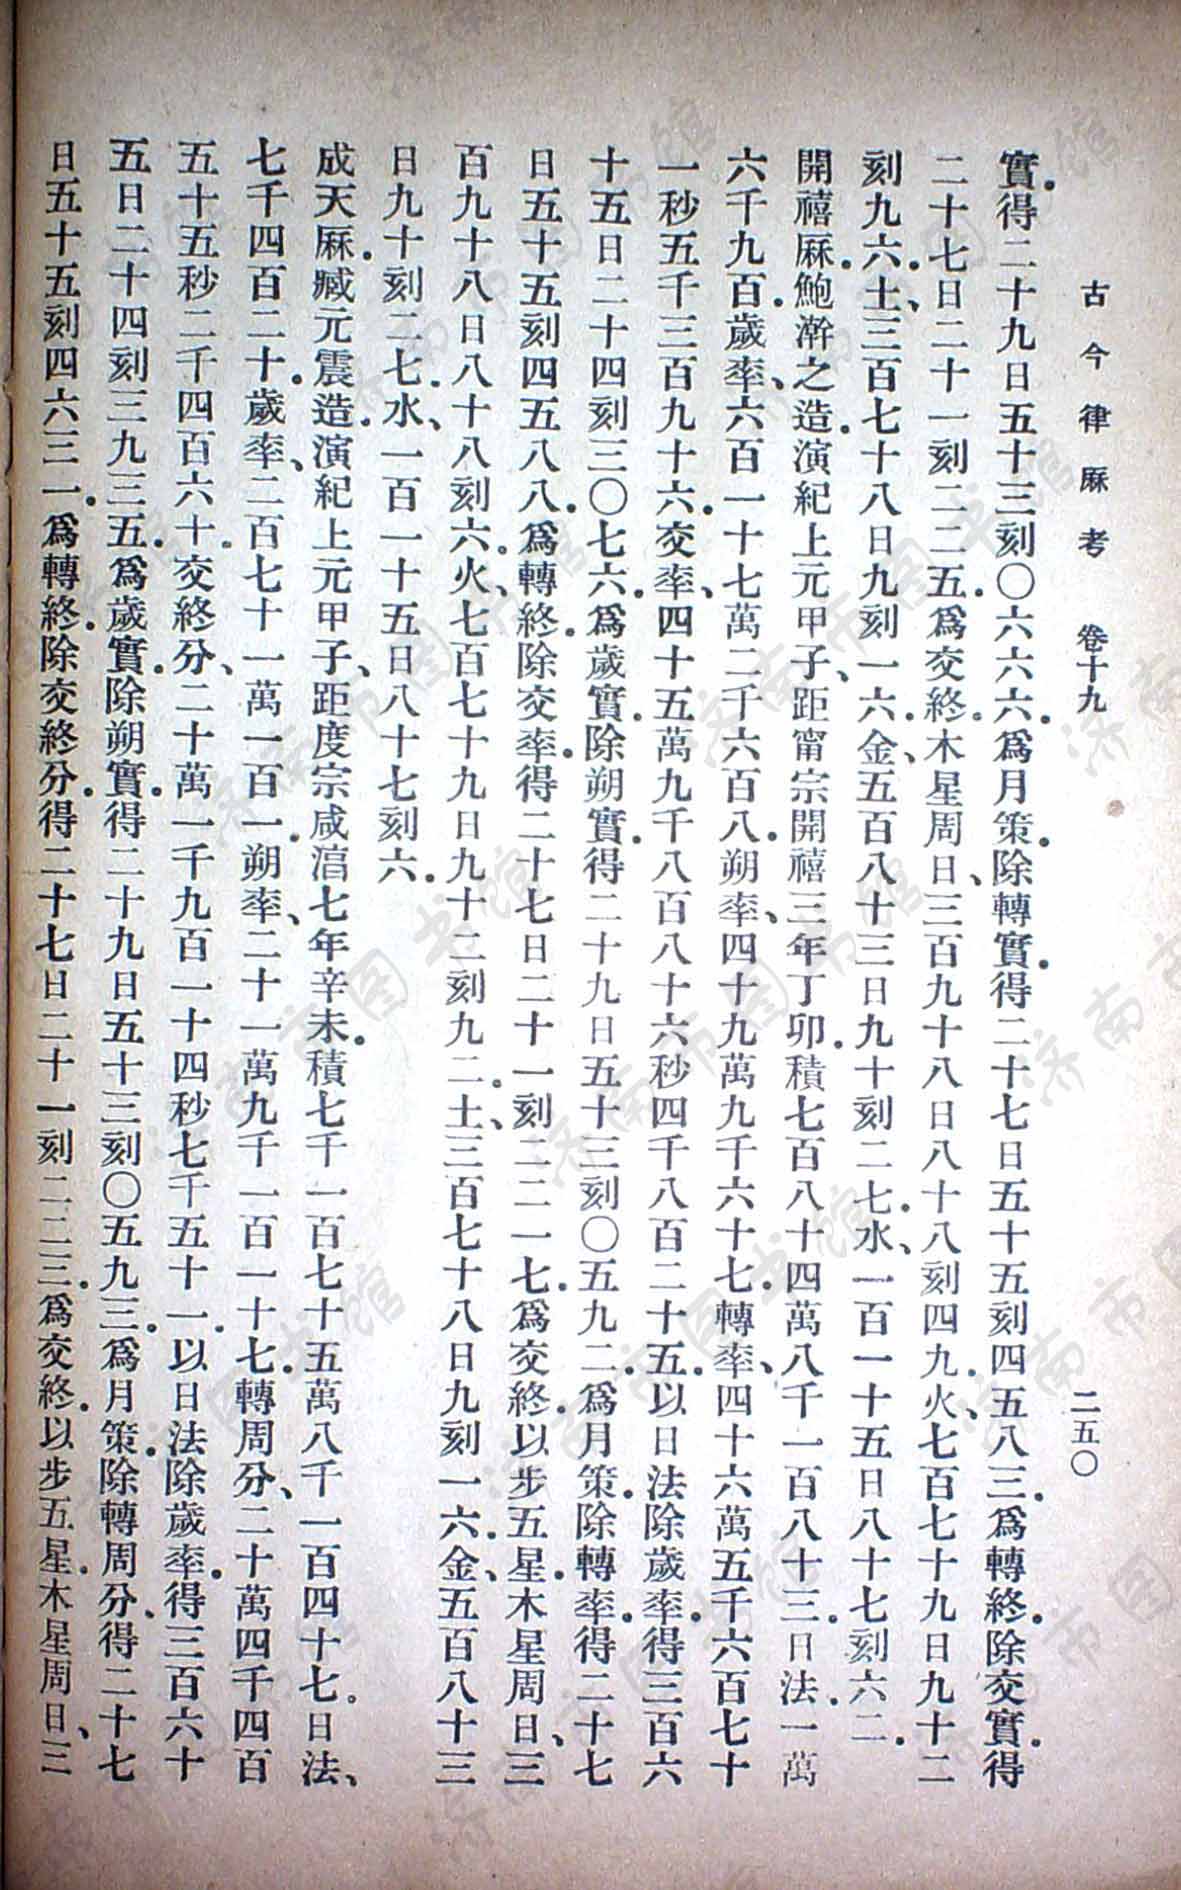 古今律厤考　卷十九　二五〇
實。得二十九日五十三刻〇六六六。爲月策。除轉實。得二十七日五十五刻四五八三。爲轉終。除交實。得
二十七日二十一刻二二五。爲交終。木星周日、三百九十八日八十八刻四九。火、七百七十九日九十二
刻九六。土、三百七十八日九刻一六。金、五百八十三日九十刻二七。水、一百一十五日八十七刻六二。
開禧厤。鮑澣之造。演紀上元甲子、距甯宗開禧三年丁卯。積七百八十四萬八千一百八十三。日法一萬
六千九百。歲率、六百一十七萬二千六百八。朔率、四十九萬九千六十七。轉率、四十六萬五千六百七十
一秒五千三百九十六。交率、四十五萬九千八百八十六秒四千八百二十五。以日法除歲率。得三百六
十五日二十四刻三〇七六。爲歲實。除朔實。得二十九日五十三刻〇五九二。爲月策。除轉率。得二十七
日五十五刻四五八八。爲轉終。除交率。得二十七日二十一刻二二一七。爲交終。以步五星。木星周日、三
百九十八日八十八刻六。火、七百七十九日九十二刻九二。土、三百七十八日九刻一六。金、五百八十三
日九十刻二七。水、一百一十五日八十七刻六。
成天厤。臧元震造。演紀上元甲子、距度宗咸湻七年辛未。積七千一百七十五萬八千一百四十七。日法、
七千四百二十。歲率、二百七十一萬一百一。朔率、二十一萬九千一百一十七。轉周分、二十萬四千四百
五十五秒二千四百六十。交終分、二十萬一千九百一十四秒七千五十一。以日法除歲率。得三百六十
五日二十四刻三九三五。爲歲實。除朔實。得二十九日五十三刻〇五九三。爲月策。除轉周分、得二十七
日五十五刻四六三一。爲轉終。除交終分。得二十七日二十一刻二二三。爲交終。以步五星。木星周日、三